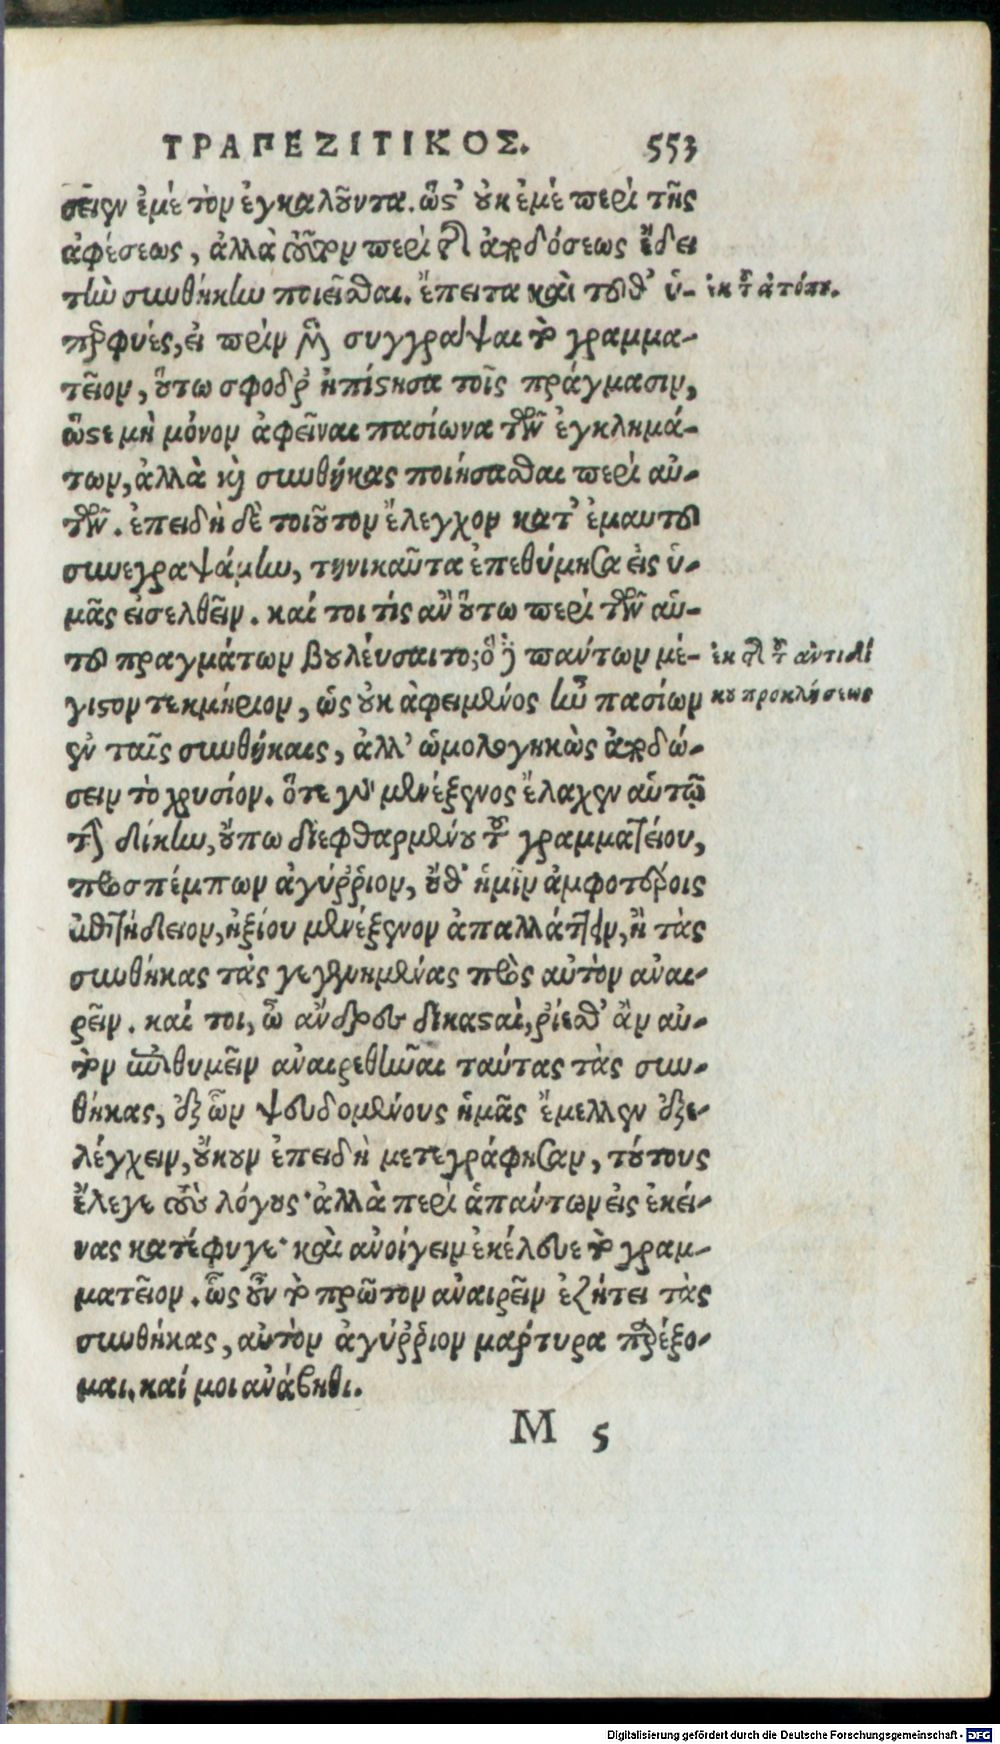 ΤΡΑΠΕΖΙΤΙΚΟΣ. 553
σειεν ἐμὲ τὸν ἐγκαλοῦντα. ὥστ' οὐκ ἐμὲ περὶ τῆς
ἀφέσεως, ἀλλὰ τοῦτον περὶ τῆς ἀποδόσεως ἔδει
τὴν συνθήκην ποιεῖσθαι. ἔπειτα καὶ τοῦθ' ὑ-
ἐκ τοῦ ἀτόπου.
περφυὲς, εἰ πρὶν μὲν συγγράψαι τὸ γραμμα-
τεῖον, οὕτω σφόδρ' ἠπίστησα τοῖς πράγμασιν,
ὥστε μὴ μόνον ἀφεῖναι πασίωνα τῶν ἐγκλημά-
των, ἀλλὰ καὶ συνθήκας ποιήσασθαι περὶ αὐ-
τῶν. ἐπειδὴ δὲ τοιοῦτον ἔλεγχον κατ' ἐμαυτοῦ
συνεγραψάμην, τηνικαῦτα ἐπεθύμησα εἰς ὑ-
μᾶς εἰσελθεῖν. καί τοι τίς ἂν οὕτω περὶ τῶν αὑ-
τοῦ πραγμάτων βουλεύσαιτο; ὃ δὲ πάντων μέ-
ἐκ τῆς τοῦ ἀντιδί
γιστον τεκμήριον, ὡς οὐκ ἀφειμένος ἦν πασίων
κου προκλήσεως
ἐν ταῖς συνθήκαις, ἀλλ' ὡμολογηκὼς ἀποδώ-
σειν τὸ χρυσίον. ὅτε γὰρ μενέξενος ἔλαχεν αὐτῷ
τὴν δίκην, οὔπω διεφθαρμένου τοῦ γραμματείου,
προσπέμπων ἀγύρριον, ὄνθ' ἡμῖν ἀμφοτέροις
ἐπιτήδειον, ἠξίου μενέξενον ἀπαλλάττειν, ἢ τὰς
συνθήκας τὰς γεγενημένας πρὸς αὐτὸν ἀναι-
ρεῖν. καί τοι, ὦ ἄνδρες δικασταὶ, οἴεσθ' ἂν αὐ-
τὸν ἐπιθυμεῖν ἀναιρεθῆναι ταύτας τὰς συν-
θήκας, ἐξ ὧν ψευδομένους ἡμᾶς ἔμελλεν ἐξε-
λέγχειν, οὔκουν ἐπειδὴ μετεγράφησαν, τούτους
ἔλεγε τοὺς λόγους· ἀλλὰ περὶ ἁπάντων εἰς ἐκεί-
νας κατέφυγε· καὶ ἀνοίγειν ἐκέλευε τὸ γραμ-
ματεῖον. ὡς οὖν τὸ πρῶτον ἀναιρεῖν ἐζήτει τὰς
συνθήκας, αὐτὸν ἀγύρριον μάρτυρα παρέξο-
μαι. καί μοι ἀνάβηθι.
M 5
Digitalisierung gefördert durch die Deutsche Forschungsgemeinschaft - DFG